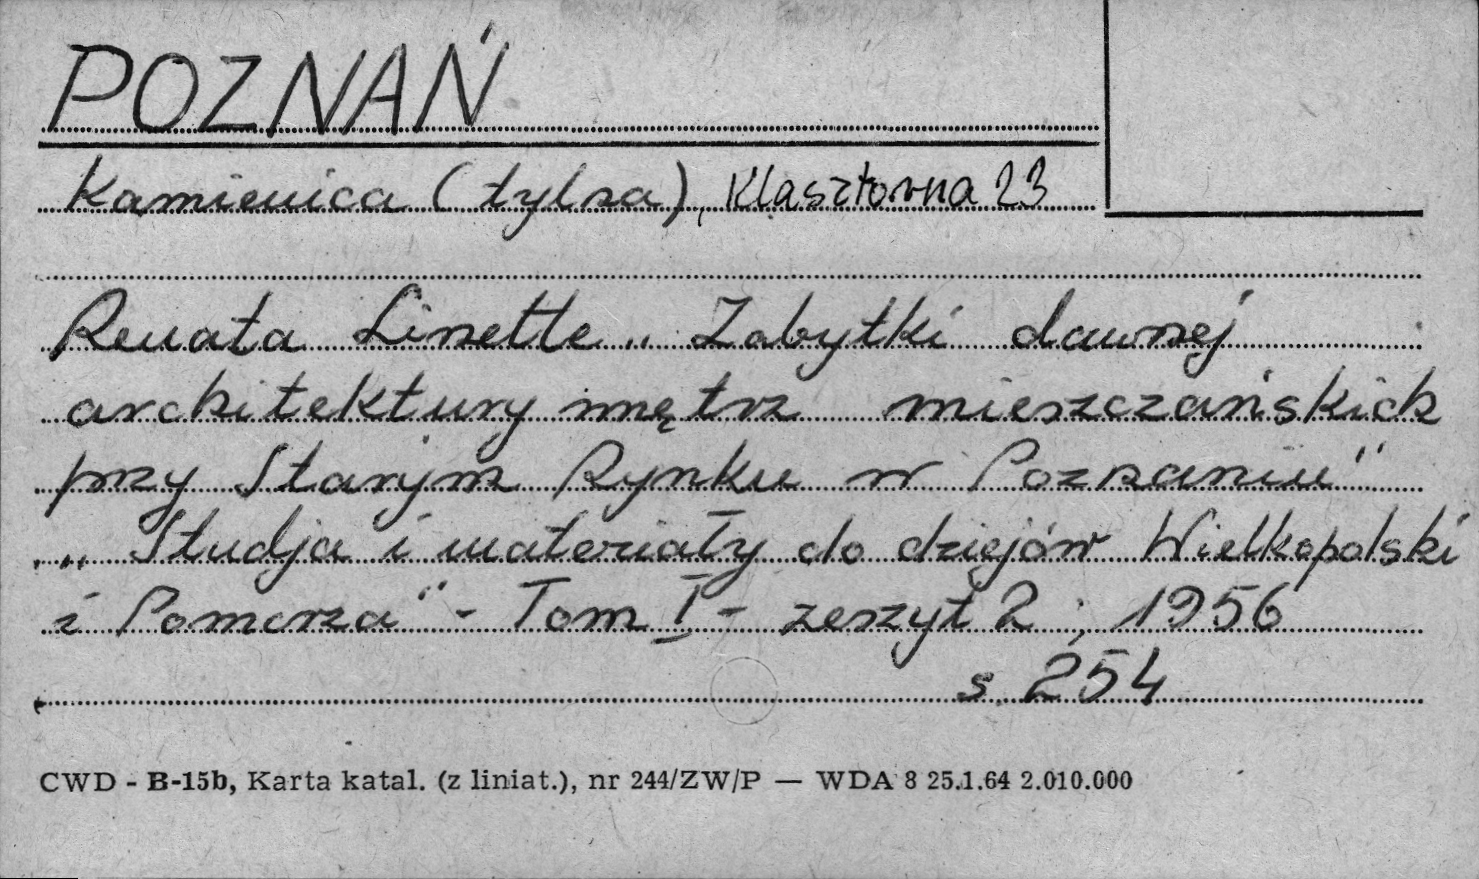 POZNAŃ
Kamienica (tylna), Klasztorna 23
Renata Linette „Zabytki dawnej
architektury wnętrz mieszczańskich
przy Starym Rynku w Poznaniu"
„Studja i materiały do dziejów Wielkopolski
i Pomorza" - Tom I - zeszyt 2, 1956
s. 254
CWD - B-15b, Karta katal. (z liniat.), nr 244/ZW/P — WDA 8 25.1.64 2.010.000